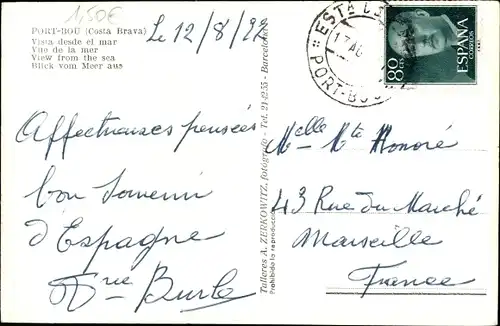 1,50€
PORT-BOU (Costa Brava)
Vista desde el mar
Vue de la mer
View from the sea
Blick vom Meer aus
Le 12/8/
Affectueuses pensées
bon souvenir
d'Espagne
Burle
Talleres A. ZERKOWITZ, fotógrafo - Tel. 214255 - Barcelona
Prohibida la reproducción
PORT-BOU
80
CTS
ESPAÑA
CORREOS
Melle Mte Honoré
43 Rue du Marché
Marseille
France